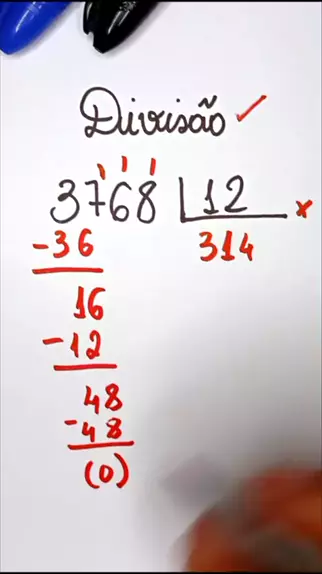 Divisão ✓
3768 | 12 x
-36 314
16
-12
48
-48
(0)